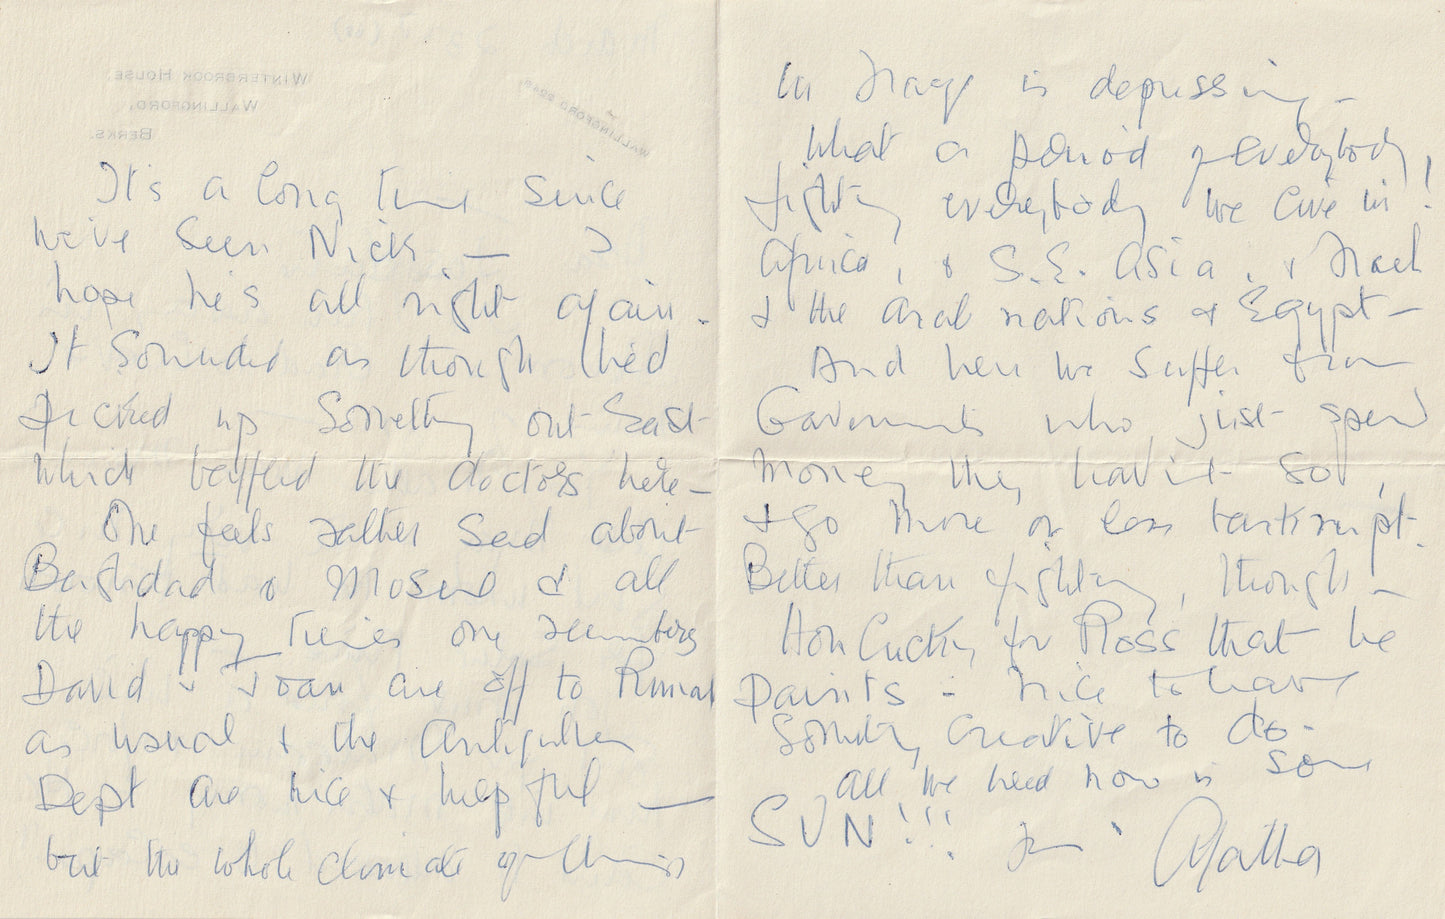 WINTERBROOK HOUSE,
WALLINGFORD,
BERKS.
WALLINGFORD
It's a long time since
we've seen Nick — I
hope he's all right again.
It sounded as though he'd
picked up something out East
which baffled the doctors here —
One feels rather sad about
Baghdad & Mosul & all
the happy times one remembers
David & Joan are off to
as usual & the Antiquities
Dept are nice & helpful —
but the whole climate of things
in Iraq is depressing —
What a period of everybody
fighting everybody we live in!
Africa, & S.E. Asia, & Israel
& the Arab nations & Egypt —
And here we suffer from
Governments who just spend
money they haven't got,
& go more or less bankrupt.
Better than fighting, though —
How lucky for Ross that he
paints — nice to have
something creative to do.
All we need now is some
SUN!!! Agatha